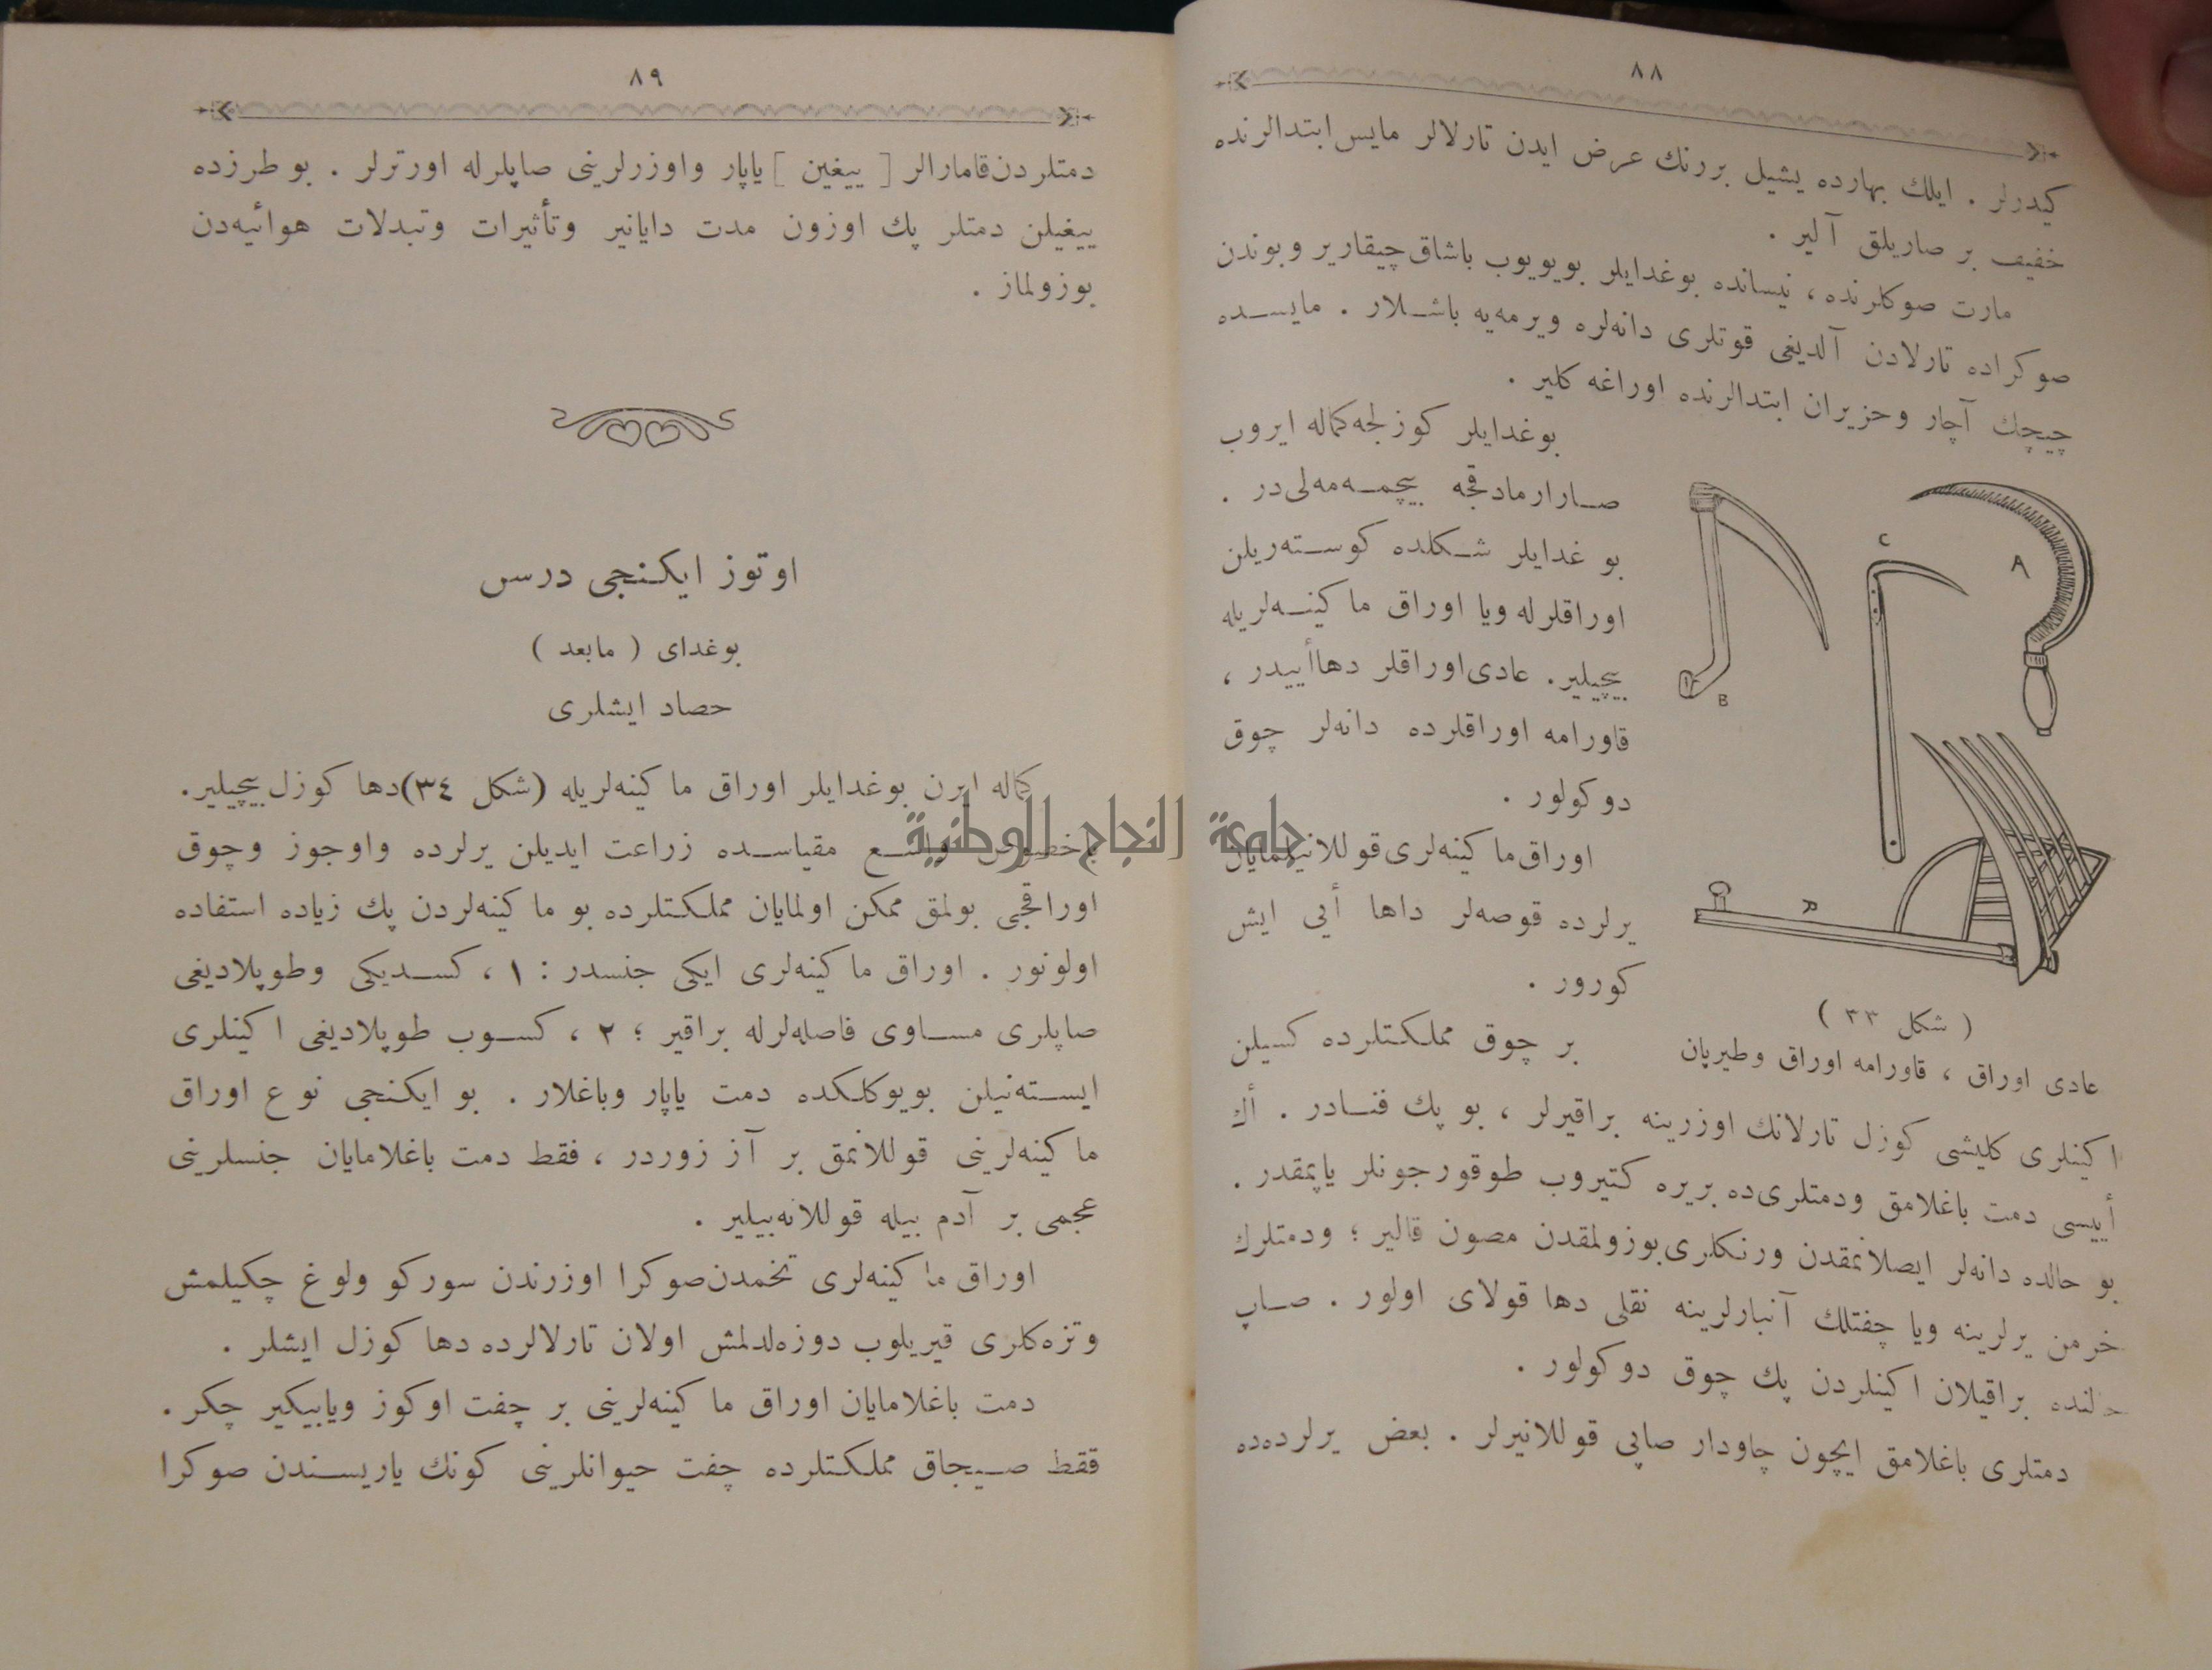 ٨٨
كیدرلر . ایلك بهارده یشیل بررنك عرض ایدن تارلالر مایس ابتدالرنده
خفیف بر صاریلق آلیر .
مارت صوكلرنده ، نیسانده بوغدایلر بویویوب باشاق چیقاریر وبوندن
صوكراده تارلادن آلدیغی قوتلری دانه‌لره ویرمه‌یه باشلار . مایسده
چیچك آچار وحزیران ابتدالرنده اوراغه كلیر .
بوغدایلر كوزلجه كماله ایروب
صارارمادقجه بیچمه‌مه‌لی‌در .
بو غدایلر شكلده كوسته‌ریلن
اوراقلرله ویا اوراق ماكینه‌لریله
بیچیلیر. عادی اوراقلر دها أییدر ،
قاورامه اوراقلرده دانه‌لر چوق
دوكولور .
اوراق ماكینه‌لری قوللانیلمایان
یرلرده قوصه‌لر داها أیی ایش
كورور .
A
C
B
R
( شكل ٣٣ )
عادی اوراق ، قاورامه اوراق وطیرپان
بر چوق مملكتلرده كسیلن
اكینلری كلیشی كوزل تارلانك اوزرینه براقیرلر ، بو پك فنادر . أك
أییسی دمت باغلامق ودمتلری‌ده بریره كتیروب طوقورجونلر یاپمقدر .
بو حالده دانه‌لر ایصلانمقدن ورنكلری بوزولمقدن مصون قالیر ؛ ودمتلرك
خرمن یرلرینه ویا چفتلك آنبارلرینه نقلی دها قولای اولور . صاپ
حالنده براقیلان اكینلردن پك چوق دوكولور .
دمتلری باغلامق ایچون چاودار صاپی قوللانیرلر . بعض یرلرده‌ده
٨٩
دمتلردن قامارالر [ ییغین ] یاپار واوزرلرینی صاپلرله اورترلر . بو طرزده
ییغیلن دمتلر پك اوزون مدت دایانیر وتأثیرات وتبدلات هوائیه‌دن
بوزولماز .
اوتوز ایكنجی درس
بوغدای ( مابعد )
حصاد ایشلری
كماله ایرن بوغدایلر اوراق ماكینه‌لریله (شكل ٣٤) دها كوزل بیچیلیر.
باخصوص واسع مقیاسده زراعت ایدیلن یرلرده واوجوز وچوق
اوراقجی بولمق ممكن اولمایان مملكتلرده بو ماكینه‌لردن پك زیاده استفاده
اولونور . اوراق ماكینه‌لری ایكی جنسدر : ١ ، كسدیكی وطوپلادیغی
صاپلری مساوی فاصله‌لرله براقیر ؛ ٢ ، كسوب طوپلادیغی اكینلری
ایسته‌نیلن بویوكلكده دمت یاپار وباغلار . بو ایكنجی نوع اوراق
ماكینه‌لرینی قوللانمق بر آز زوردر ، فقط دمت باغلامایان جنسلرینی
عجمی بر آدم بیله قوللانه‌بیلیر .
اوراق ماكینه‌لری تخمدن صوكرا اوزرندن سوركو ولوغ چكیلمش
وتزه‌كلری قیریلوب دوزه‌لدلمش اولان تارلالرده دها كوزل ایشلر .
دمت باغلامایان اوراق ماكینه‌لرینی بر چفت اوكوز ویابیكیر چكر .
فقط صیجاق مملكتلرده چفت حیوانلرینی كونك یاریسندن صوكرا
جامعة النجاح الوطنية